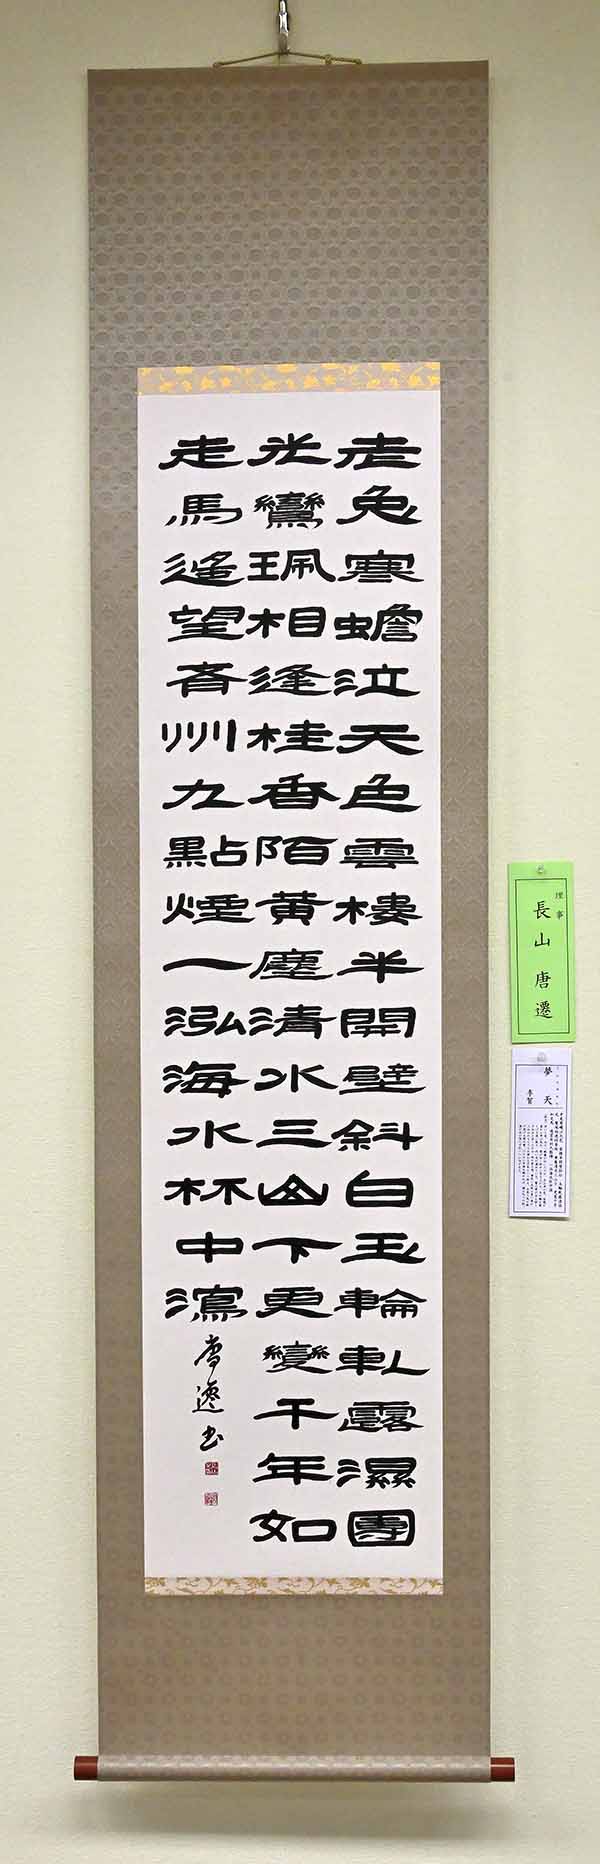 老兔寒蟾泣天色雲樓半開壁斜白玉輪軋露濕團
光鸞珮相逢桂香陌黃塵清水三山下更變千年如
走馬遙望齊州九點煙一泓海水杯中瀉
唐遷書
理事
長山唐遷
夢天
李賀